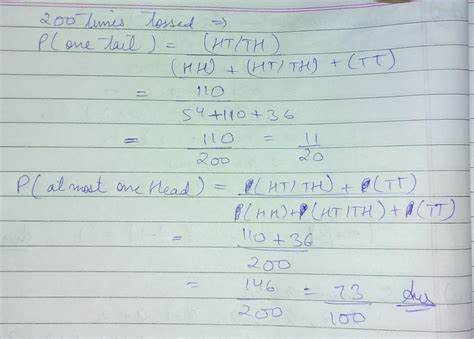 200 times tossed ⇒
P(one tail) = (HT/TH)
(HH) + (HT/TH) + (TT)
= 110
54+110+36
= 110 = 11
200 20
P(atmost one Head) = (HT/TH) + (TT)
(HH)+(HT/TH)+(TT)
= 110 + 36
200
= 146 = 73 Ans
200 100